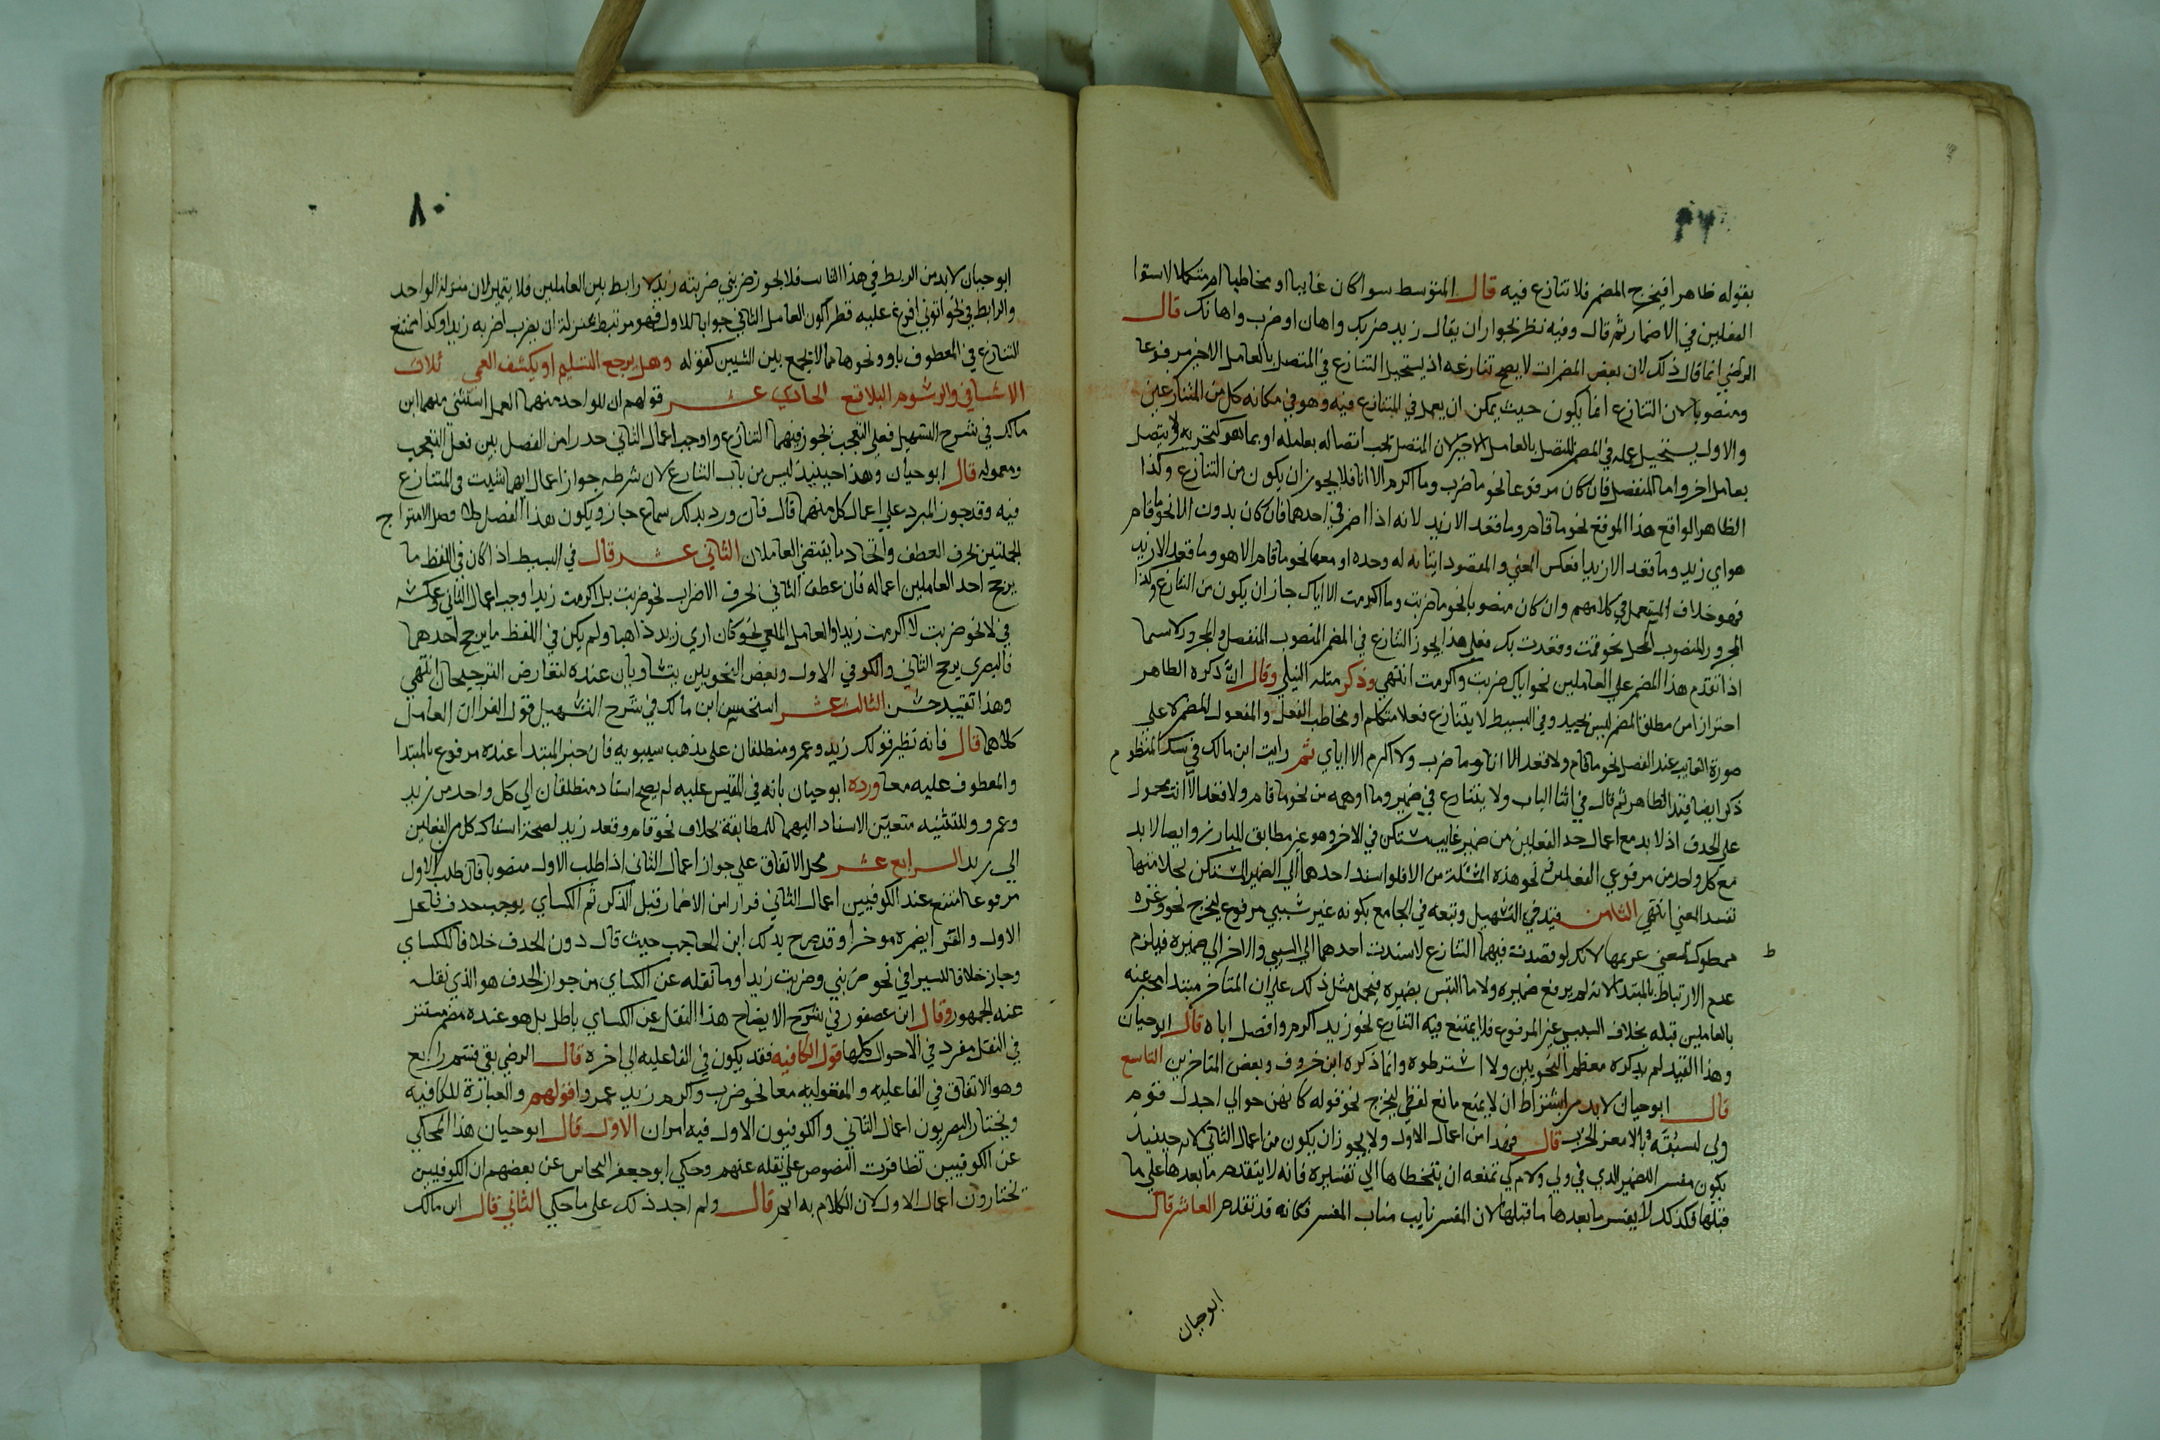 بقوله ظاهرا فيخرج المضمر فلا تنازع فيه قال المتوسط سوا كان غايبا او مخاطبا او متكلما لاستوا
الفعلين في الاضمار ثم قال وفيه نظر لجواز ان يقال زيد ضربك واهان او ضرب واهانك قال
الرضي انما قال ذلك لان بعض المضمرات لا يصح تنازعه اذ يستحيل التنازع في المتصل بالعامل الاخير مرفوعا
ومنصوبا لان التنازع انما يكون حيث يمكن ان يعمل في المتنازع فيه وهو في مكانه كل من المتنازعين
والاول يستحيل عمله في المضمر المتصل بالعامل الاخير لان المتصل يجب اتصاله بعامله او بما هو كجزئه ولا يتصل
بعامل اخر واما المنفصل فان كان مرفوعا نحو ما ضرب وما اكرم الا انا فلا يجوز ان يكون من التنازع وكذا
الظاهر الواقع هذا الموقع نحو ما قام وما قعد الا زيد لانه اذا اضمر في احدهما فان كان بدون الا نحو ما قام
هو اي زيد وما قعد الا زيد انعكس المعنى والمقصود اثباته له وحده او معها نحو ما قام الا هو وما قعد الا زيد
فهو خلاف المستعمل في كلامهم وان كان منصوبا نحو ما ضربت وما اكرمت الا اياك جاز ان يكون من التنازع وكذا
المجرور المنصوب المحل نحو قمت وقعدت بك فعلى هذا يجوز التنازع في المضمر المنصوب المنفصل والمجرور لاسيما
اذا تقدم هذا المضمر على العاملين نحو اياك ضربت واكرمت انتهى وذكر مثله النيلي وقال ان ذكره الظاهر
احترازا من مطلق المضمر ليس بجيد وفي البسيط لا يتنازع فعلا متكلم او مخاطب الفعل والمفعول المضمر لا على
صورة الغايب عند الفصل نحو ما قام ولا قعد الا انا وما ضرب ولا اكرم الا اياي ثم رايت ابن مالك في سبك المنظوم
ذكر ايضا قيد الظاهر ثم قال في اثنا الباب ولا يتنازع في ضمير وما اوهمه من نحو ما قام ولا قعد الا انت محمول
على الحذف اذ لا بد مع اعمال احد الفعلين من ضمير غايب مستكن في الاخر وهو غير مطابق للبارز وايضا لا بد
مع كل واحد من مرفوعي الفعلين في نحو هذه المسئلة من الا فلو اسند احدهما الى الضمير المستكن لخلا منها
نفسد المعنى انتهى الثامن قيد في التسهيل وتبعه في الجامع بكونه غير سببي مرفوع ليخرج نحو وعزة
ممطول معنى غريمها لانك لو قصدت فيهما التنازع لاسندت احدهما الى السببي والاخر الى ضميره فيلزم
ط
عدم الارتباط بالمبتدا لانه لم يرفع ضميره ولا ما التبس بضميره فيحمل مثل ذلك على ان المتاخر مبتدا مخبر عنه
بالعاملين قبله بخلاف السببي غير المرفوع فلا يمتنع فيه التنازع نحو زيد اكرم وافضل اباه قال ابو حيان
وهذا القيد لم يذكره معظم النحويين ولا اشترطوه وانما ذكره ابن خروف وبعض المتاخرين التاسع
قال ابو حيان لا بد من اشتراط ان لا يمنع مانع لفظي ليخرج نحو قوله كانهن خوالي اجدل قرم
ولى ليسبقه بالامعز الخرب قال فهذا من اعمال الاول ولا يجوز ان يكون من اعمال الثاني لانه حينيذ
يكون مفسر الضمير الذي في ولي ولام كي تمنعه ان يتخطاها الى تفسيره فانه لا يتقدم ما بعدها على ما
قبلها فكذلك لا يفسر ما بعدها ما قبلها لان المفسر نايب مناب المفسر فكانه قد تقدم العاشر قال
ابو حيان
٨٠
ابو حيان لا بد من الربط في هذا الباب فلا يجوز ضربني ضربته زيد لا رابط بين العاملين فلا يتميز لان منزلة الواحد
والرابط في نحو اتوني افرغ عليه قطرا كون العامل الثاني جوابا للاول فهو مرتبط بمنزلة ان يضرب اضربه زيدا وكذا يمتنع
التنازع في المعطوف باو ونحوها مما لا يجمع بين الشيين كقوله وهل يرجع التسليم او يكشف العمى ثلاث
الاثافي والرسوم البلاقع الحادي عشر قولهم ان لواحد منهما العمل استثنى منهما ابن
مالك في شرح التسهيل فعلي التعجب نحو زيد فيهما التنازع واوجب اعمال الثاني حذرا من الفصل بين فعل التعجب
ومعموله قال ابو حيان وهذا حينيذ ليس من باب التنازع لان شرطه جواز اعمال ايهما شيت في المتنازع
فيه وقد جوز المبرد على اعمال كل منهما قال فان ورد بذلك سماع جاز ويكون هذا الفصل كلا فصل لامتزاج
الجملتين بحرف العطف واتحاد ما يقتضي العاملان الثاني عشر قال في البسيط اذا كان في اللفظ ما
يرجح احد العاملين اعماله فان عطف الثاني بحرف الاضراب نحو ضربت بل اكرمت زيدا وجب اعمال الثاني وعكسه
في لا نحو ضربت لا اكرمت زيدا والعامل الملغى نحو كان ارى زيد ذاهبا ولم يكن في اللفظ ما يرجح احدهما
فالبصري يرجح الثاني والكوفي الاول وبعض النحويين يتساويان عنده لتعارض الترجيحان انتهى
وهذا تقييد حسن الثالث عشر استحسن ابن مالك في شرح التسهيل قول الفرا ان العامل
كلاهما قال فانه نظير قولك زيد وعمرو منطلقان على مذهب سيبويه فان خبر المبتدا عنده مرفوع بالمبتدا
والمعطوف عليه معا ورده ابو حيان بانه في المقيس عليه لم يصح اسناد منطلقان الى كل واحد من زيد
وعمرو وللتثنيه متعين الاسناد اليهما للمطابقة بخلاف نحو قام وقعد زيد لصحة اسناد كل من الفعلين
الى زيد الرابع عشر محل الاتفاق على جواز اعمال الثاني اذا طلب الاول منصوبا فان طلب الاول
مرفوعا امتنع عند الكوفيين اعمال الثاني فرارا من الاضمار قبل الذكر ثم الكساي يوجب حذف فاعل
الاول والفرا يضمره موخرا وقد صرح بذلك ابن الحاجب حيث قال دون الحذف خلافا للكساي
وجاز خلافا للسيرافي نحو ضربني وضربت زيدا وما نقله عن الكساي من جواز الحذف هو الذي نقله
عنه الجمهور وقال ابن عصفور في شرح الايضاح هذا النقل عن الكساي باطل بل هو عنده مضمر مستتر
في الفعل مفرد في الاحوال كلها قول الكافيه فقد يكون في الفاعليه الى اخره قال الرضي بقي قسم رابع
وهو الاتفاق في الفاعليه والمفعوليه معا نحو ضرب واكرم زيد عمروا قولهم والعبارة للكافيه
ويختار البصريون اعمال الثاني والكوفيون الاول فيه امران الاول قال ابو حيان هذا المحكي
عن الكوفيين تظافرت النصوص على نقله عنهم وحكى ابو جعفر النحاس عن بعضهم ان الكوفيين
يختارون اعمال الاول لان الكلام به انجر قال ولم اجد ذلك على ما حكى الثاني قال ابن مالك